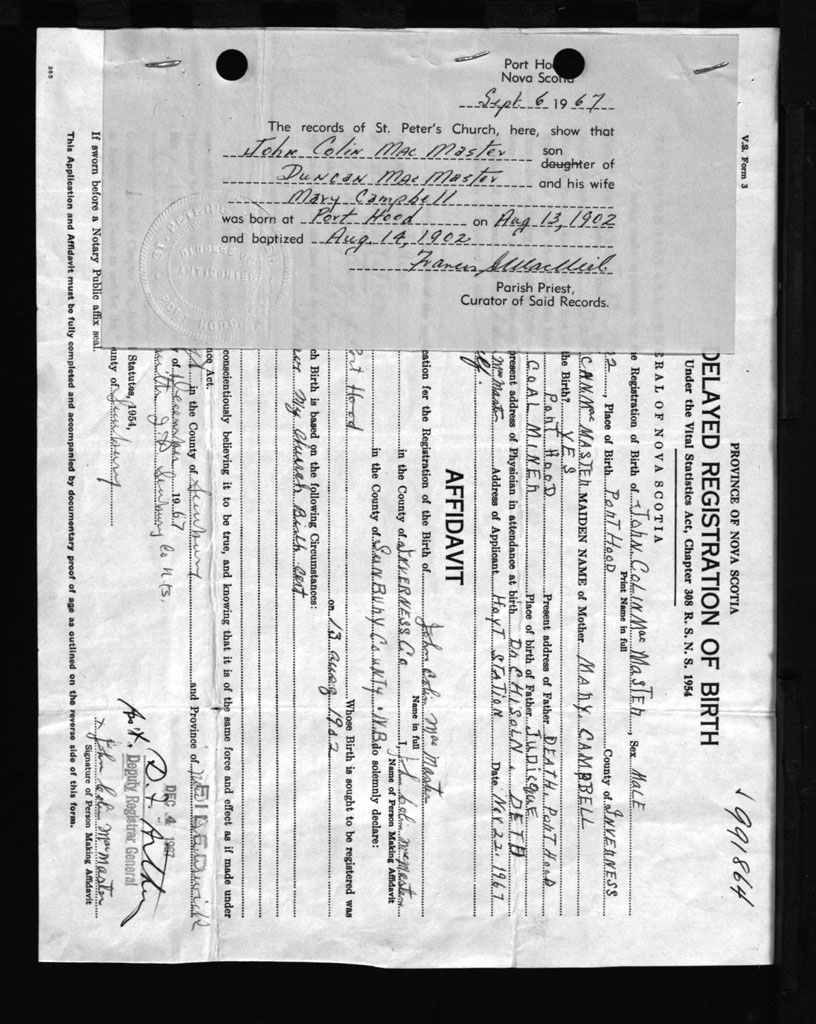 Port Ho
Nova Scotia
Sept 6 1967
The records of St. Peter's Church, here, show that
John Colin MacMaster son
daughter of
Duncan MacMaster and his wife
Mary Campbell
was born at Port Hood on Aug 13, 1902
and baptized Aug. 14, 1902
Francis
Parish Priest,
Curator of Said Records.
ST. PETER'S
ANTIGONISH
PORT HOOD
V.S. Form 3
1991864
PROVINCE OF NOVA SCOTIA
DELAYED REGISTRATION OF BIRTH
Under the Vital Statistics Act, Chapter 308 R. S. N. S. 1954
ERAL OF NOVA SCOTIA
e Registration of Birth of John Colin MacMaster, Sex Male
Print Name in full
2, Place of Birth Port Hood County of Inverness
CAN McMASTER MAIDEN NAME of Mother MARY. CAMPBELL
the Birth? YES
Port Hood Present address of Father DEATH. Port Hood
COAL MINER Place of birth of Father JUDICQUE
present address of Physician in attendance at birth Dr CHISOLN. DETH
McMaster Address of Applicant HOYT STATION Date Nov. 22. 1967
AFFIDAVIT
ation for the Registration of the Birth of John Colin MacMaster
Name in full
in the County of INVERNESS Co I, John Colin McMaster
Name of Person Making Affidavit
in the County of SUNBURY COUNTY. N.B. do solemnly declare:
Whose Birth is sought to be registered was
ort Hood on 13 aug 1902
ch Birth is based on the following Circumstances:
My Church Birth Cert
conscientiously believing it to be true, and knowing that it is of the same force and effect as if made under
nce Act.
in the County of Sunbury and Province of
y of December 1967
Sunbury Co N.B.
Statutes, 1954,
unty of Sunbury
FREDERICTON
DEC 4 1967
Deputy Registrar General
John Colin MacMaster
Signature of Person Making Affidavit
If sworn before a Notary Public affix seal.
This Application and Affidavit must be fully completed and accompanied by documentary proof of age as outlined on the reverse side of this form.